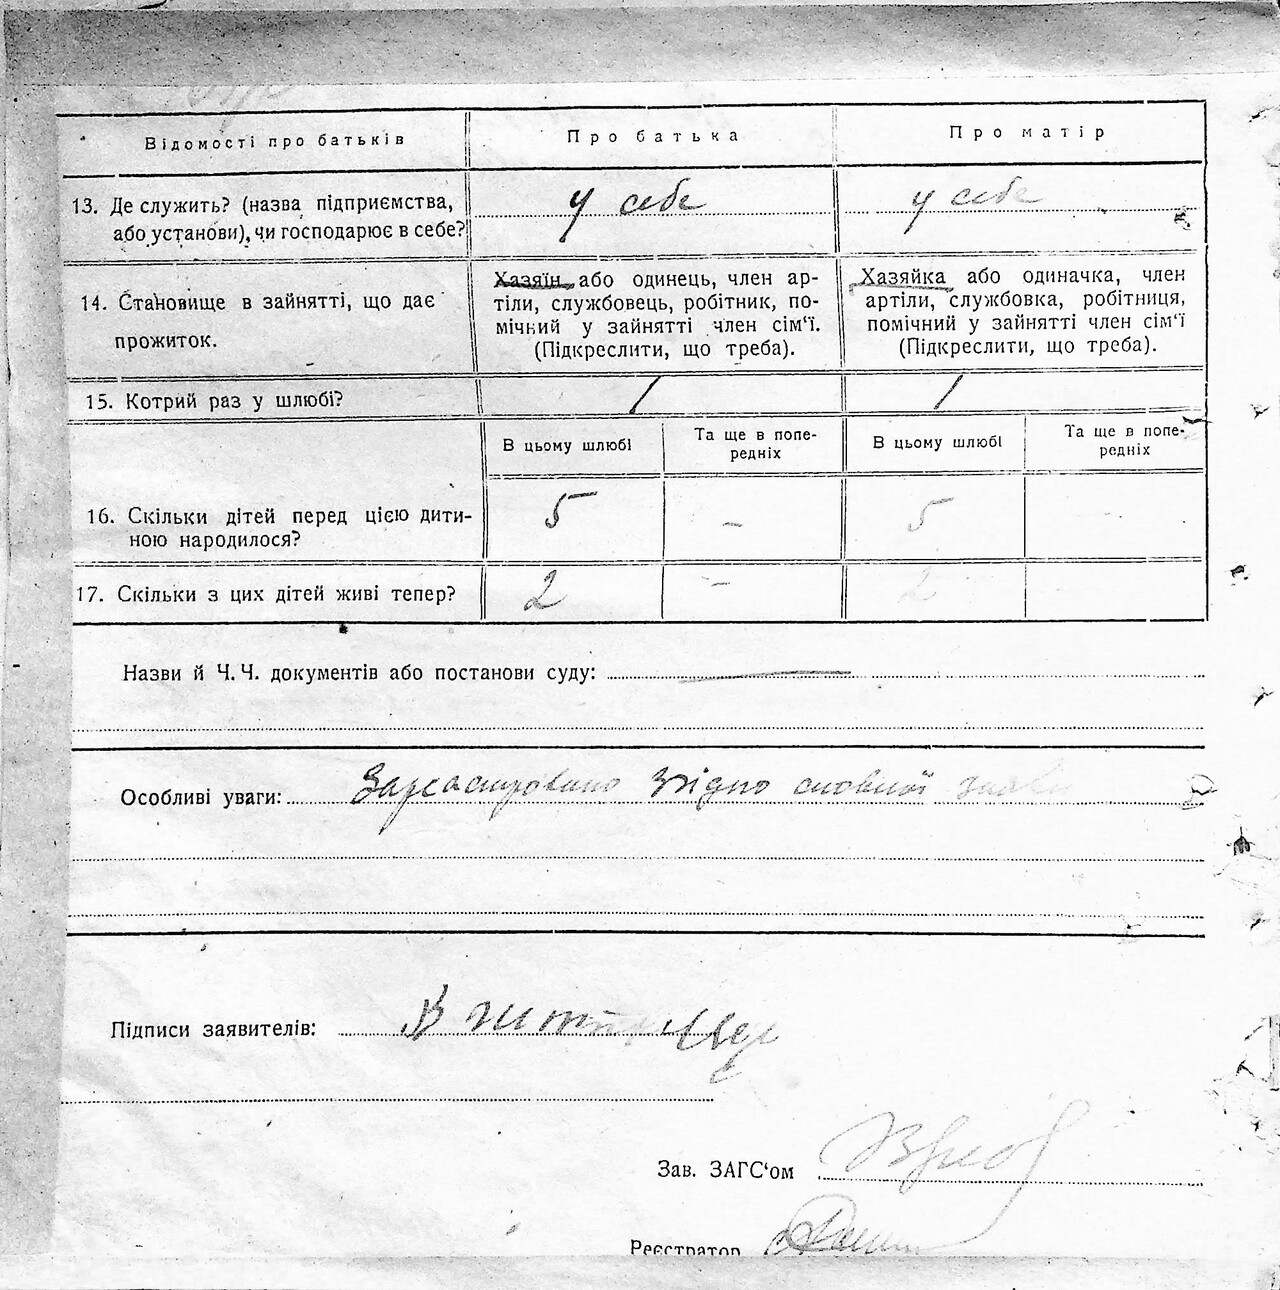 Відомості про батьків
Про батька
Про матір
13. Де служить? (назва підприємства,
або установи), чи господарює в себе?
у себе
у себе
14. Становище в зайнятті, що дає
прожиток.
Хазяїн або одинець, член ар-
тіли, службовець, робітник, по-
мічний у зайнятті член сім‘ї.
(Підкреслити, що треба).
Хазяйка або одиначка, член
артіли, службовка, робітниця,
помічний у зайнятті член сім‘ї
(Підкреслити, що треба).
15. Котрий раз у шлюбі?
1
1
В цьому шлюбі
Та ще в попе-
редніх
В цьому шлюбі
Та ще в попе-
редніх
16. Скільки дітей перед цією дити-
ною народилося?
5
-
5
-
17. Скільки з цих дітей живі тепер?
2
-
2
Назви й Ч. Ч. документів або постанови суду:
Особливі уваги: згідно словної заяви
Підписи заявителів:
Зав. ЗАГС‘ом
Реєстратор